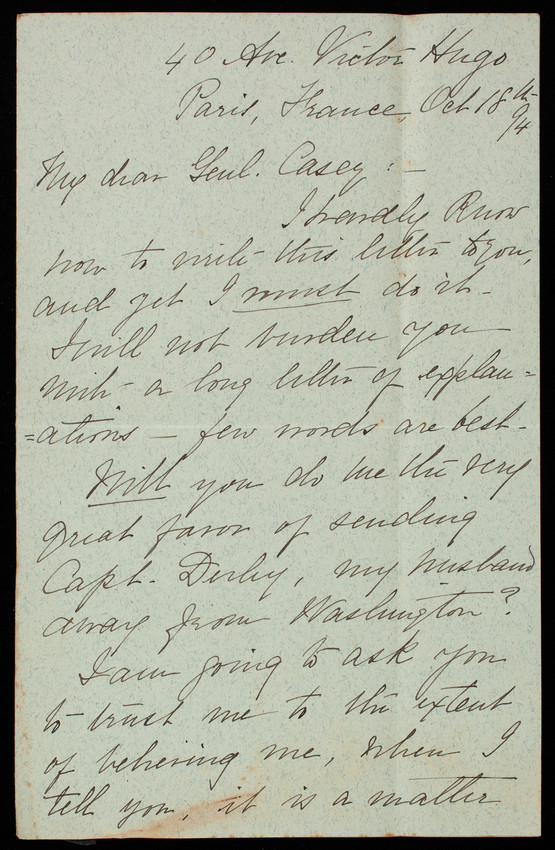 40 Ave. Victor Hugo
Paris, France, Oct 18th
94
My dear Genl. Casey :-
I hardly Know
how to write this letter to you,
and yet I must do it -
I will not burden you
with a long letter of explan=
=ations - few words are best -
Will you do me the very
great favor of sending
Capt. Derby, my husband
away from Washington?
I am going to ask you
to trust me to the extent
of believing me, when I
tell you, it is a matter